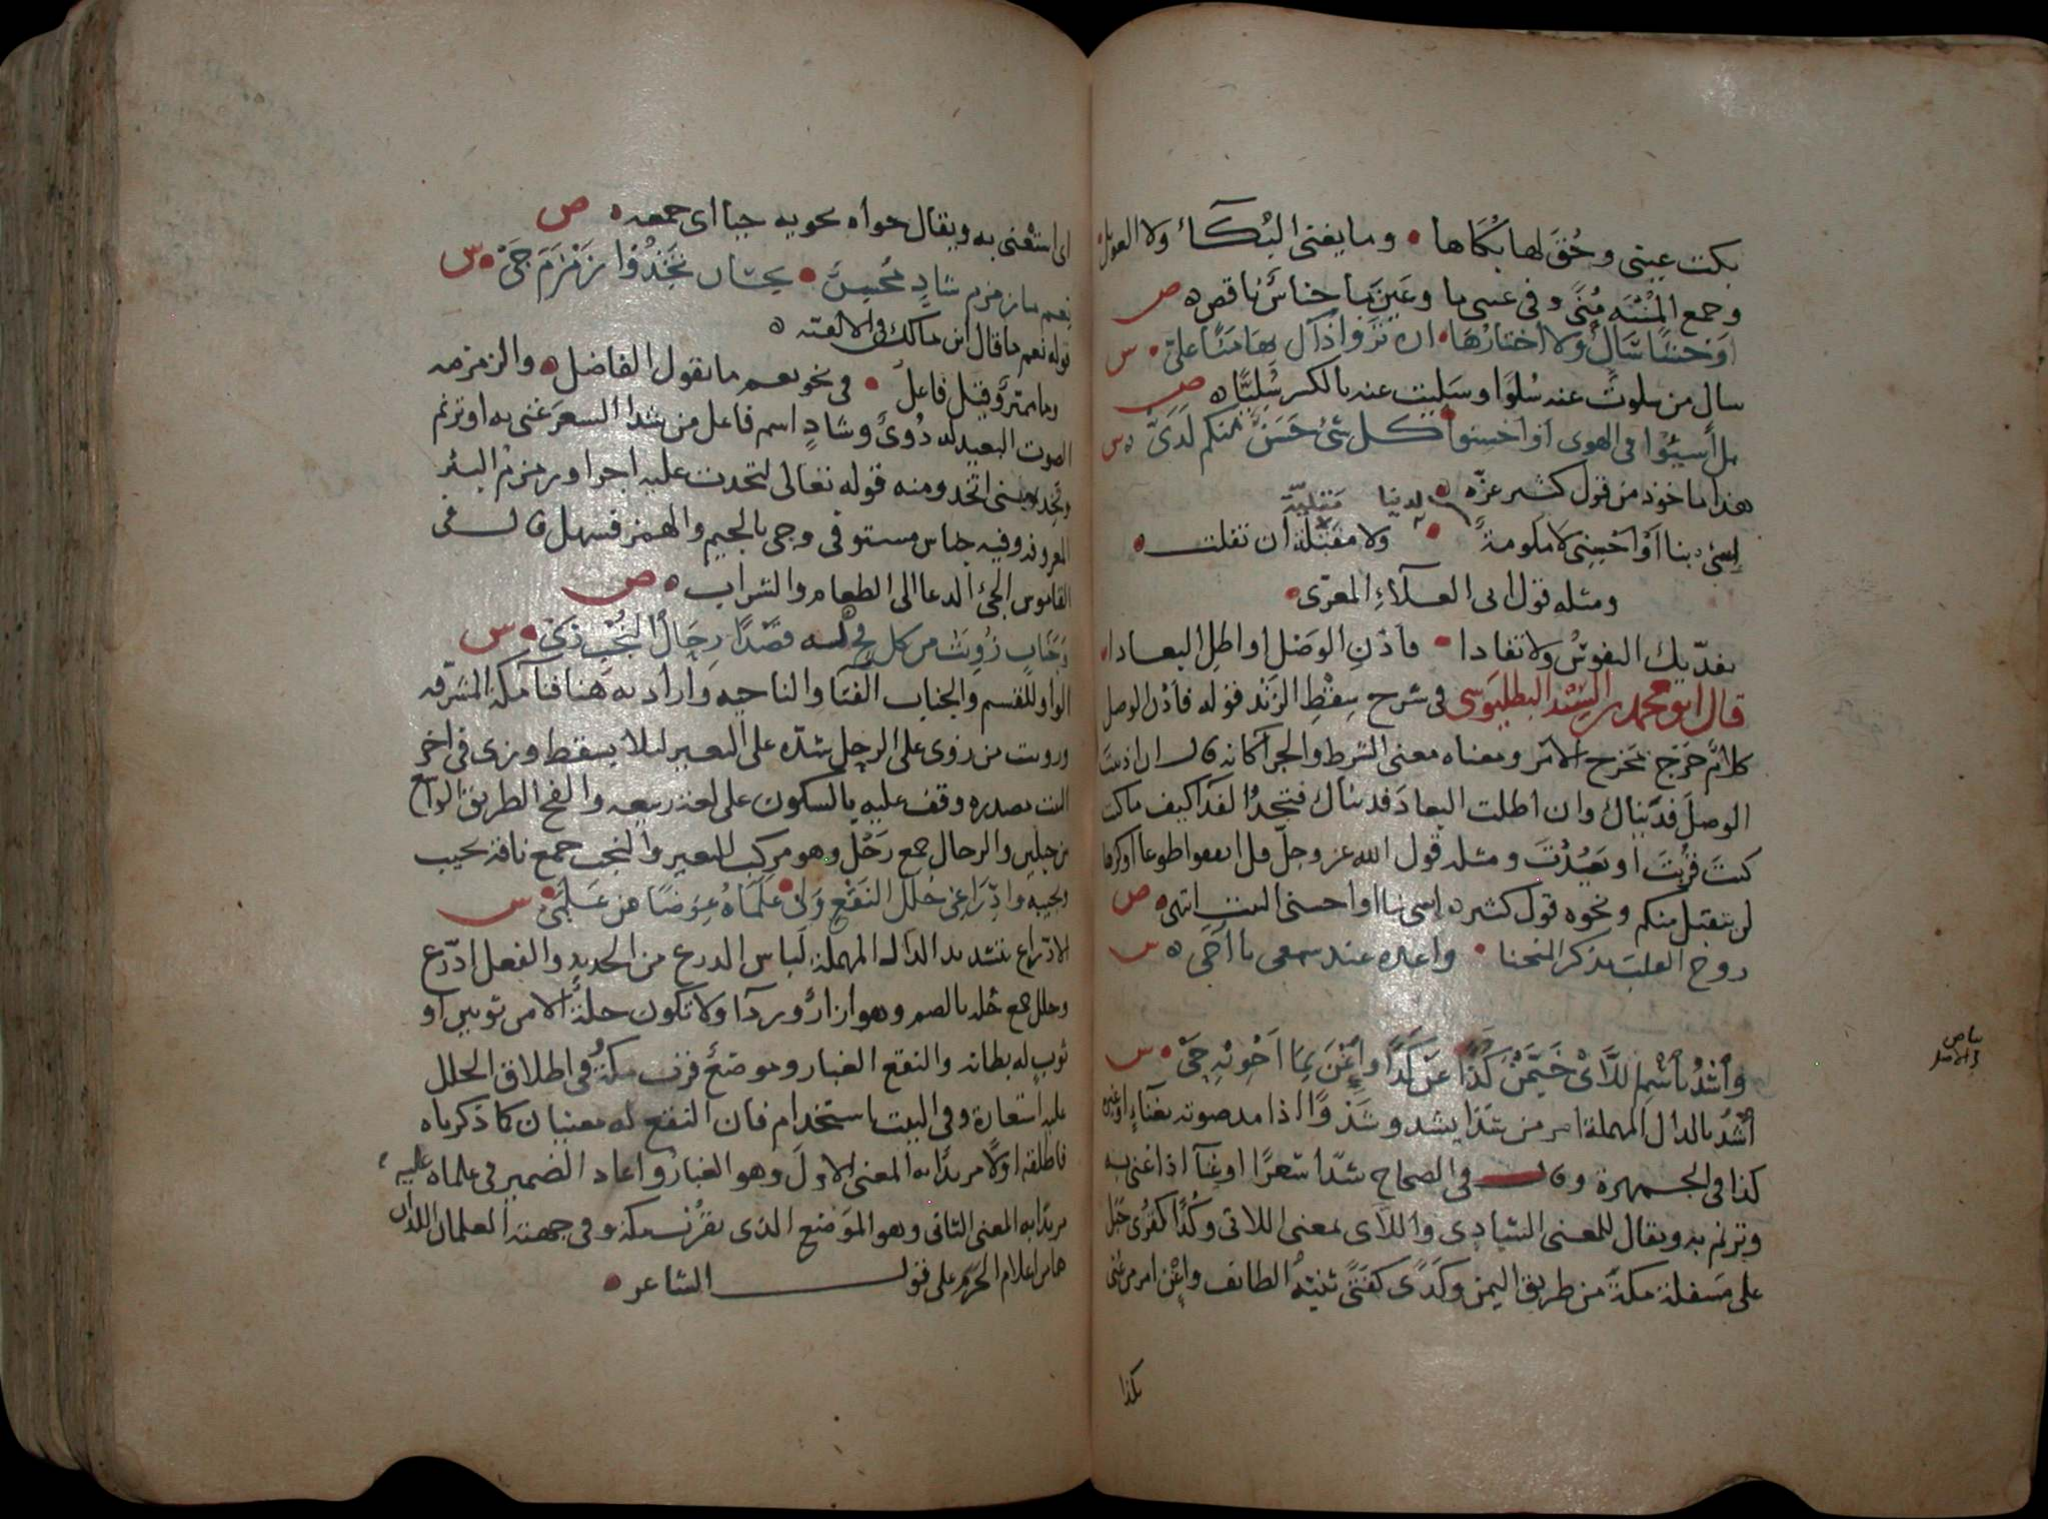 بكت عيني وحُقَ لها بُكاها • وما يغنى البُكآء ولا العويل
وجمع المُنْيَه مُنًى وفى عسى ما وعَيْنَيَّ جناسٌ ناقص ه ص
سالٍ من سلوتُ عنه سُلوًا وسَلِيت عنه بالكسر سُلِيًّا ه ص
بل أسيئوا فى الهوى او احسنوا كل شئ حَسَنٌ منكم لَدَىَّ ه س
هذا ماخوذ من قول كثير عزّه
لدينا مقليّة
اسئ بنا أو احسنى لا ملومةً • ولا مقليّة ان تقلت ه
ومثله قول ابى العلآء المعرّى •
تفدّيك النفوسُ ولا تفادا • فأدْنِ الوَصْل او اطِل البعادا
قال ابو محمد بن السيد البطليوسى فى شرح سِقْطِ الزَنْد قوله فأدن الوصل
كلامٌ خرج مَخرج الامر ومعناه معنى الشرط والجزآ كانه قال ان ادنيت
الوصلَ فدَيناك وان اطلت البعادَ فديناك
كنتَ قرُبْتَ او بَعُدْتَ ومثله قول الله عز وجلّ قل انفقوا طوعا او كرها
لن يتقبل منكم ونحوه قول كثير ه اسئ بنا او احسنى البيت انتهى ه ص
روح القلب بذكر المنحنا • واعده عند سمعى يا أخى ه س
بياض فى الاصل
وأشْدُ بأسْمِ اللآئ خَيَّمْنَ كذا عَن كُدًا وأعْنَ بما أحْوِيْهِ حَىْ • س
أشْدُ بالدال المهملة امر من شدا يشدو شَدْوًا اذا مد صوته بغنآء او غيره
كذا فى الجمهرة وقال فى الصحاح شدا شعرًا او غنآ اذا غنى به
وترنم به ويقال للمغنى الشادى واللآى بمعنى اللاتى وكُدًا كقرى جبل
على مسفلة مكة من طريق اليمن وكَدَى كفَتًى ثنيّة الطائف واعْن امر من عنى
بكذا
اى استغنى به ويقال حواه يحويه حيا اى جمعه ه ص
نعم ما زمزم شادٍ محسِنٌ • بحسان تَخِذُوا زمزمَ جَىّ • س
قوله نعم ما قال ابن مالك فى الالفيه ه
وما مميّز وقيل فاعلٌ • فى نحو نعم ما يقول الفاضل • والزمزمه
الصوت البعيد له دُوىٌّ وشادٍ اسم فاعل من شدا الشعرَ غنى به او ترنم
وتخذ بمعنى اتخذ ومنه قوله تعالى لتخذت عليه اجرا وزمزم البئر
المعروفه وفيه جناس مستوفى وجى بالجيم والهمز فسهل قال فى
القاموس الجئ الدعا الى الطعام والشراب ه ص
وجَنابٍ زُويَتْ من كل فجٍّ له قصْدًا رجالُ النُجْبِ زَىّ • س
الواو للقسم والجناب الفنآ والناحيه واراد به هنا فنآ مكة المشرّفه
وزويت من زوى على الرجل شدّه على البعير ليلا يسقط وزى فى اخر
البيت مصدره وقف عليه بالسكون على لغة ربيعه والفج الطريق الواسع
بن جبلين والرحال جمع رَحْل وهو مركب للبعير والنجب جمع ناقة نجيب
ونجيبه وادّراعى حُلَلَ النَقْعِ وَلىْ • عَلَماهُ عِوضًا عن عَلَمَىّ • س
الادّراع بتشديد الدال المهملة لباس الدرع من الحديد والفعل ادّرع
وحلل جمع حُله بالضم وهو ازارٌ وردآ ولا تكون حلةً الا من ثوبين او
ثوب له بطانه والنقع الغبار وموضعٌ قرب مكةَ وفى اطلاق الحلل
عليه استعارة وفى البيت استخدام فان النقع له معنيان كما ذكرناه
فاطلقه اولًا مريدًا به المعنى الاول وهو الغبار واعاد الضمير فى علماه عليه
مريدًا به المعنى الثانى وهو الموضع الذى بقرب مكة وفى جهته العلمان اللذان
هما من اعلام الحَرَم على قول الشاعر ه